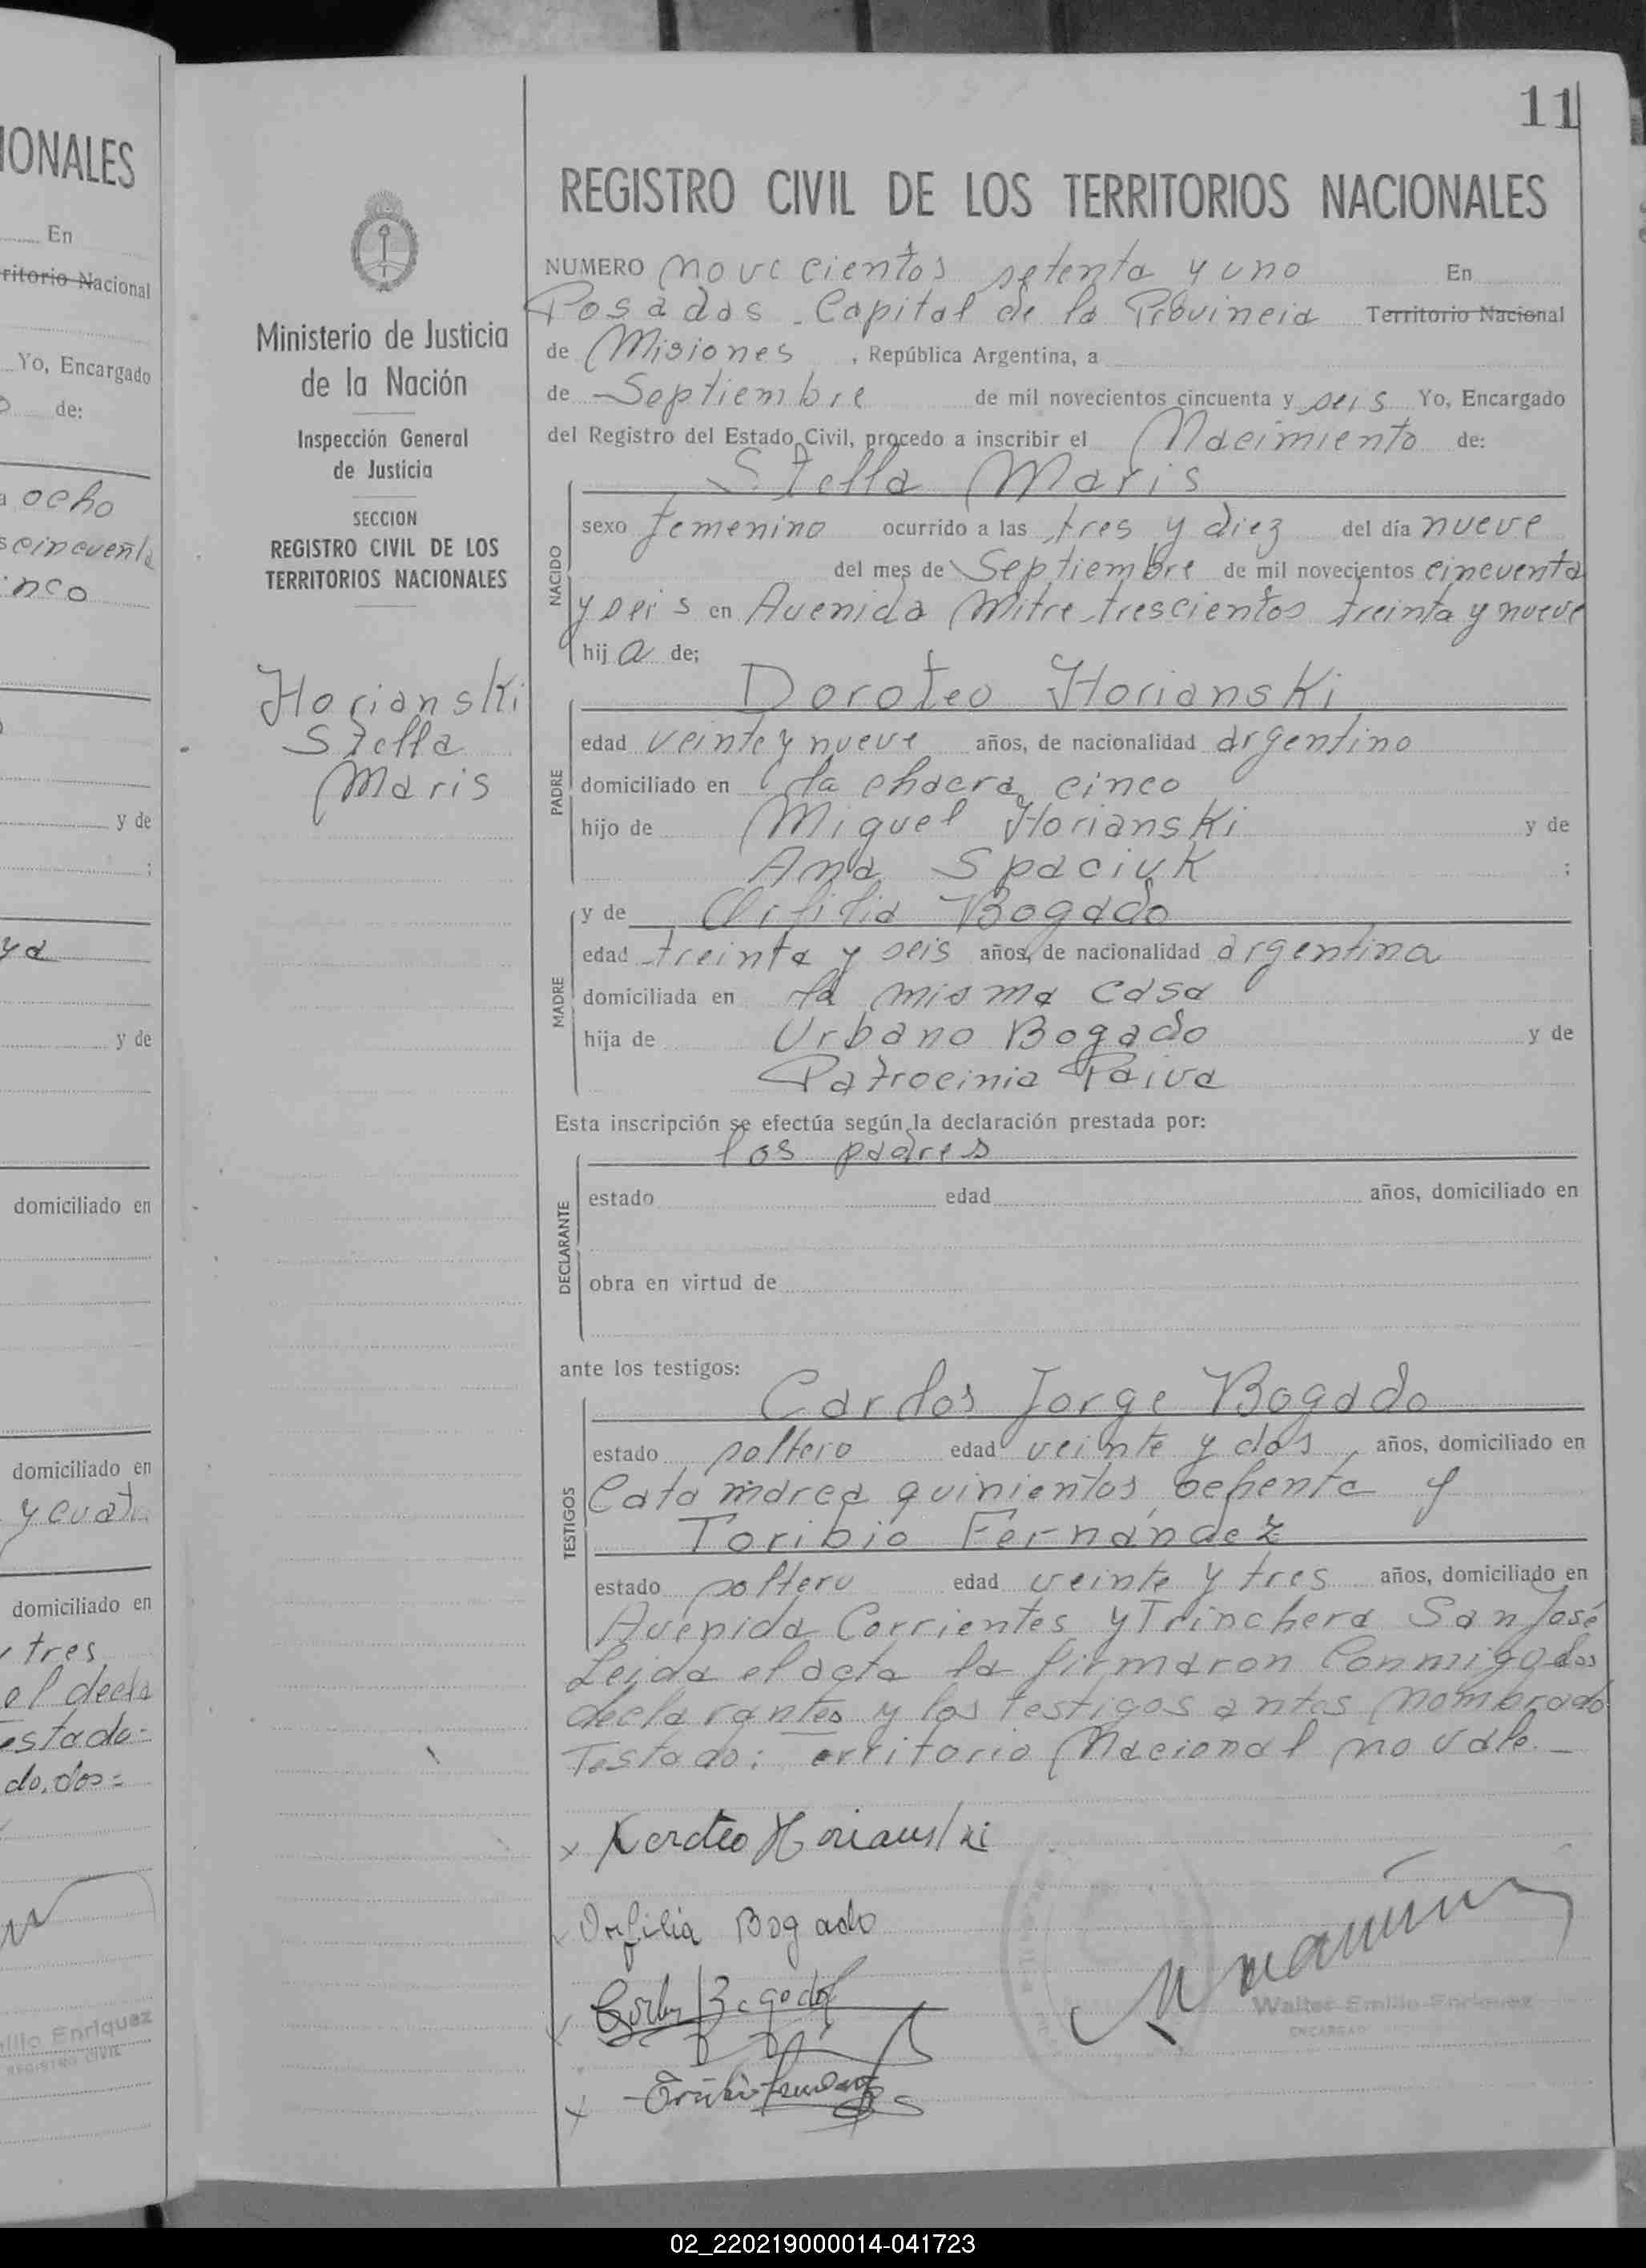 IONALES
En
ritorio Nacional
Yo, Encargado
de:
a ocho
s cincuenta
inco
y de
ya
y de
domiciliado en
domiciliado en
y cuat
domiciliado en
y tres
el decla
estado=
do, dos=
ilio Enriquez
REGISTRO CIVIL
Ministerio de Justicia
de la Nación
Inspección General
de Justicia
SECCION
REGISTRO CIVIL DE LOS
TERRITORIOS NACIONALES
Horianski
Stella
Maris
11
REGISTRO CIVIL DE LOS TERRITORIOS NACIONALES
NUMERO novecientos setenta y uno En
Posadas - Capital de la Provincia Territorio Nacional
de Misiones , República Argentina, a
de Septiembre de mil novecientos cincuenta y seis Yo, Encargado
del Registro del Estado Civil, procedo a inscribir el Nacimiento de:
Stella Maris
NACIDO
sexo femenino ocurrido a las tres y diez del día nueve
del mes de Septiembre de mil novecientos cincuenta
y seis en Avenida Mitre trescientos treinta y nueve
hij a de;
Doroteo Horianski
PADRE
edad veinte y nueve años, de nacionalidad argentino
domiciliado en la chacra cinco
hijo de Miguel Horianski y de
Ana Spaciuk ;
MADRE
y de Orfilia Bogado
edad treinta y seis años, de nacionalidad argentina
domiciliada en la misma casa
hija de Urbano Bogado y de
Patrocinia Paiva
Esta inscripción se efectúa según la declaración prestada por:
los padres
DECLARANTE
estado edad años, domiciliado en
obra en virtud de
ante los testigos:
Carlos Jorge Bogado
TESTIGOS
estado soltero edad veinte y dos años, domiciliado en
Catamarca quinientos ochenta y
Toribio Fernández
estado soltero edad veinte y tres años, domiciliado en
Avenida Corrientes y Trinchera San José
Leida el acta la firmaron conmigo los
declarantes y los testigos antes nombrado
Testado: erritorio Nacional no vale.-
x Doroteo Horianski
x Orfilia Bogado
x Carlos Bogado
x Toribio Fernandez
Walter Emilio Enriquez
ENCARGADO
02_220219000014-041723